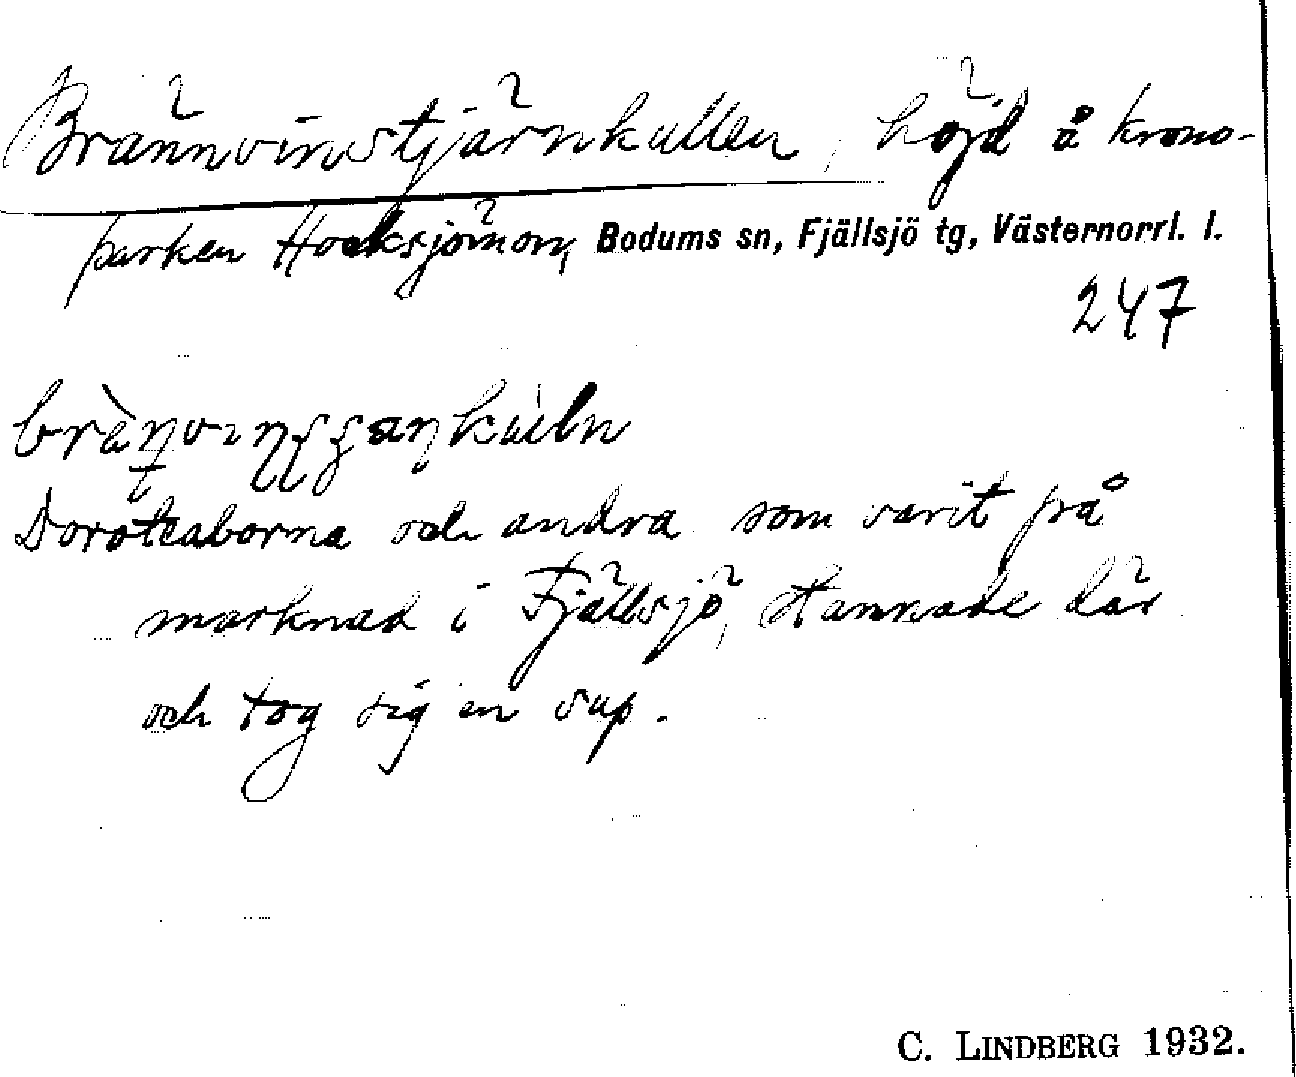 Brännvinstjärnkullen, höjd å krono-
parken Hocksjömon, Bodums sn, Fjällsjö tg, Västernorrl. l.
247
Doroteaborna och andra som varit på
marknad i Fjällsjö, stannade där
och tog sig en sup.
C. LINDBERG 1932.